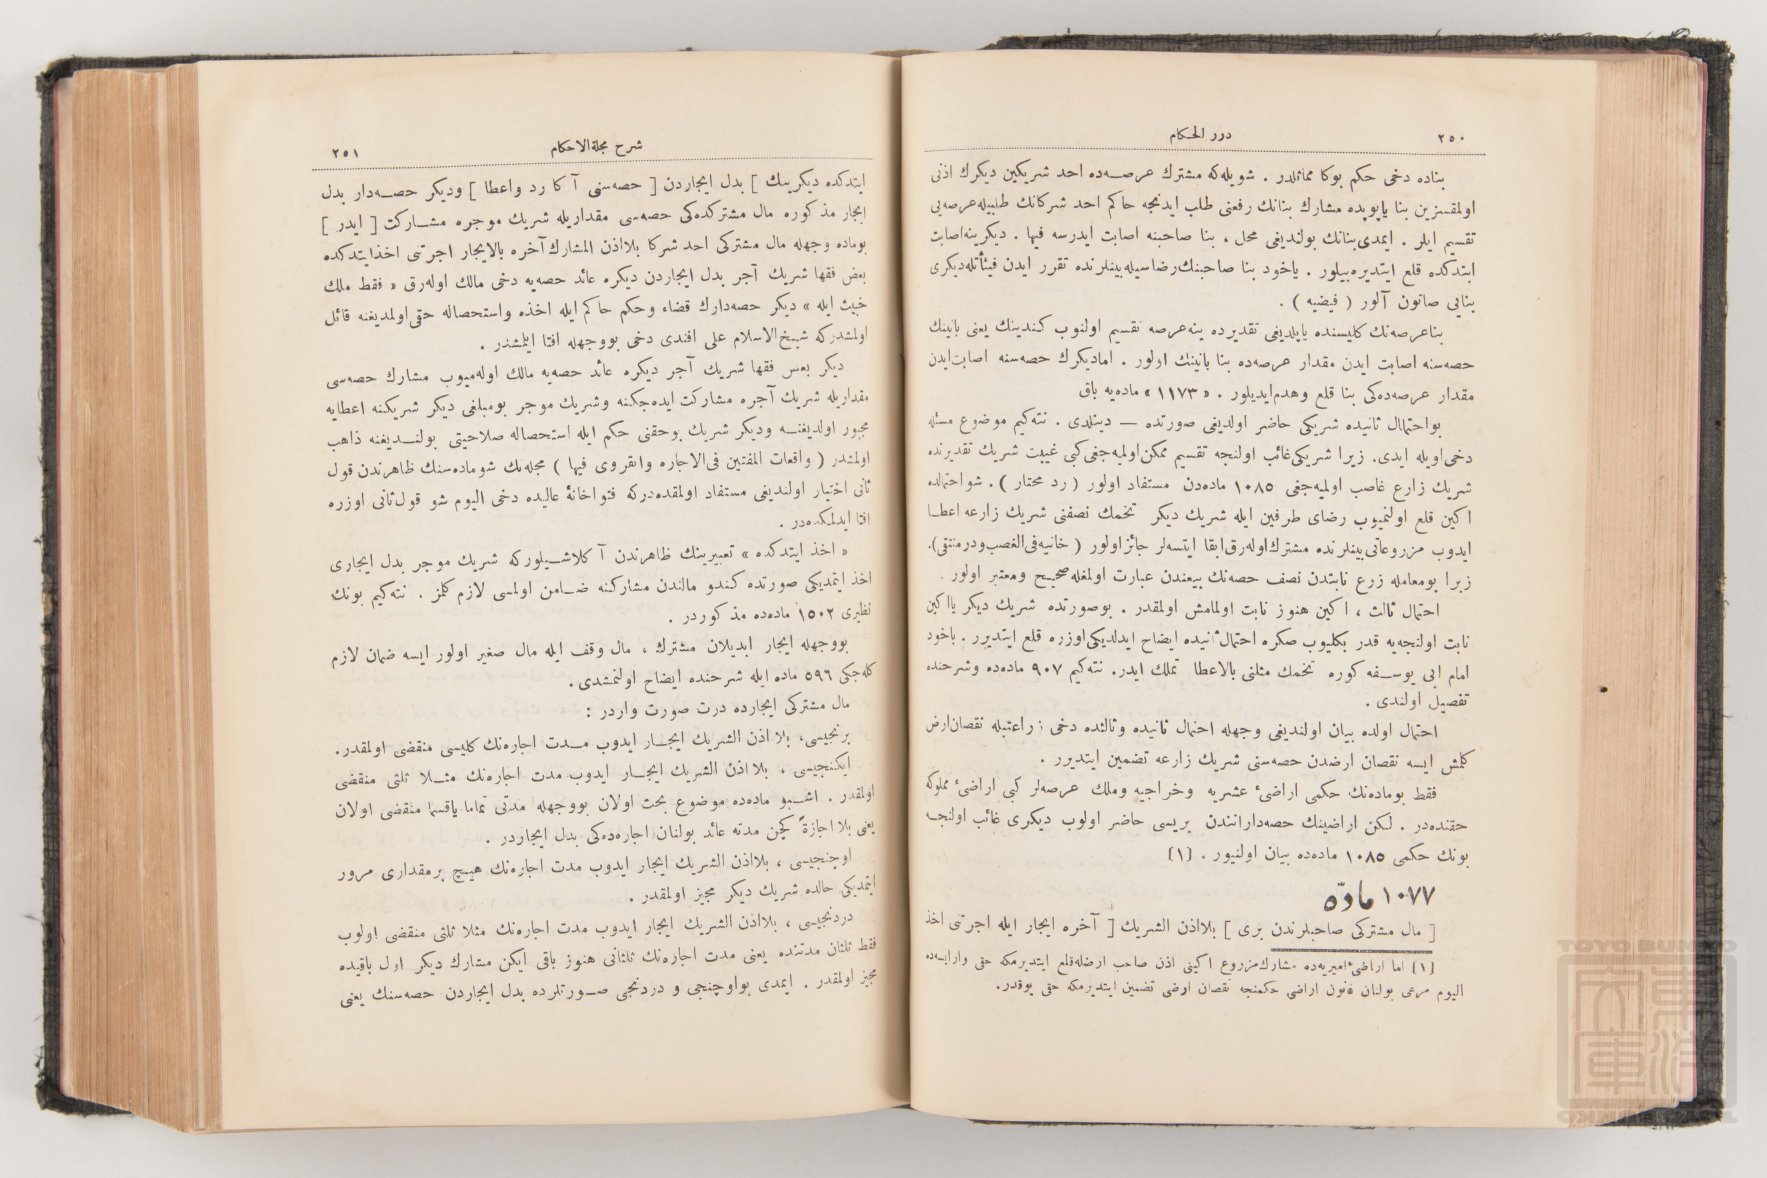 ٢٥٠
درر الحكام
بناده دخى حكم بوكا مماثلدر . شويله‌كه مشترك عرصه‌ده احد شريكين ديكرك اذنى
اولمقسزين بنا ياپوپده مشارك بنانك رفعنى طلب ايدنجه حاكم احد شركانك طلبيله عرصه‌يى
تقسيم ايلر . ايمدى بنانك بولنديغى محل ، بنا صاحبنه اصابت ايدرسه فيها . ديكرينه اصابت
ايتدكده قلع ايتديره‌بيلور . ياخود بنا صاحبنك رضاسيله بينلرنده تقرر ايدن فيئاتله ديكرى
بنايى صاتون آلور ( فيضيه ) .
بنا عرصه‌نك كليسنده ياپلديغى تقديرده ينه عرصه تقسيم اولنوب كندينك يعنى بانينك
حصه‌سنه اصابت ايدن مقدار عرصه‌ده بنا بانينك اولور . اما ديكرك حصه‌سنه اصابت ايدن
مقدار عرصه‌ده‌كى بنا قلع وهدم ايديلور . « ١١٧٣ » ماده‌يه باق
بواحتمال ثانيده شريكى حاضر اولديغى صورتده — دينلدى . نته‌كيم موضوع مسئله
دخى اويله ايدى. زيرا شريكى غائب اولنجه تقسيم ممكن اولميه‌جغى كبى غيبت شريك تقديرنده
شريك زارع غاصب اولميه‌جغى ١٠٨٥ ماده‌دن مستفاد اولور ( رد محتار ) . شو احتمالده
اكين قلع اولنميوب رضاى طرفين ايله شريك ديكر تخمك نصفنى شريك زارعه اعطا
ايدوب مزروعاتى بينلرنده مشترك اوله‌رق ابقا ايتسه‌لر جائز اولور ( خانيه فى الغصب ودر منتقى).
زيرا بومعامله زرع نابتدن نصف حصه‌نك بيعندن عبارت اولمغله صحيح ومعتبر اولور .
احتمال ثالث ، اكين هنوز نابت اولمامش اولمقدر . بوصورتده شريك ديكر يا اكين
نابت اولنجه‌يه قدر بكليوب صكره احتمال ثانيده ايضاح ايدلديكى اوزره قلع ايتديرر . ياخود
امام ابى يوسفه كوره تخمك مثلنى بالاعطا تملك ايدر. نته‌كيم ٩٠٧ ماده‌ده وشرحنده
تفصيل اولندى .
احتمال اولده بيان اولنديغى وجهله احتمال ثانيده وثالثده دخى زراعتيله نقصان ارض
كلمش ايسه نقصان ارضدن حصه‌سنى شريك زارعه تضمين ايتديرر .
فقط بوماده‌نك حكمى اراضئ عشريه وخراجيه وملك عرصه‌لر كبى اراضئ مملوكه
حقنده‌در . لكن اراضينك حصه‌دارانندن بريسى حاضر اولوب ديكرى غائب اولنجه
بونك حكمى ١٠٨٥ ماده‌ده بيان اولنيور . (١)
١٠٧٧ مادّه
[ مال مشتركى صاحبلرندن برى ] بلااذن الشريك [ آخره ايجار ايله اجرتنى اخذ
(١) اما اراضئ اميريه‌ده مشارك مزروع اكينى اذن صاحب ارضله قلع ايتديرمكه حقى وارايسه‌ده
اليوم مرعى بولنان قانون اراضى حكمنجه نقصان ارضى تضمين ايتديرمكه حقى يوقدر.
شرح مجلة الاحكام
٢٥١
ايتدكده ديكرينك ] بدل ايجاردن [ حصه‌سنى آكا رد واعطا ] وديكر حصه‌دار بدل
ايجار مذكوره مال مشتركده‌كى حصه‌سى مقداريله شريك موجره مشاركت [ ايدر ]
بوماده وجهله مال مشتركى احد شركا بلااذن المشارك آخره بالايجار اجرتنى اخذ ايتدكده
بعض فقها شريك آجر بدل ايجاردن ديكره عائد حصه‌يه دخى مالك اوله‌رق « فقط ملك
خبيث ايله » ديكر حصه‌دارك قضاء وحكم حاكم ايله اخذه واستحصاله حقى اولمديغنه قائل
اولمشدركه شيخ الاسلام على افندى دخى بووجهله افتا ايلمشدر .
ديكر بعض فقها شريك آجر ديكره عائد حصه‌يه مالك اوله‌ميوب مشارك حصه‌سى
مقداريله شريك آجره مشاركت ايده‌جكنه وشريك موجر بومبلغى ديكر شريكنه اعطايه
مجبور اولديغنه وديكر شريك بوحقنى حكم ايله استحصاله صلاحيتى بولنديغنه ذاهب
اولمشدر ( واقعات المفتين فى الاجاره وانقروى فيها ) مجله‌نك شو ماده‌سنك ظاهرندن قول
ثانى اختيار اولنديغى مستفاد اولمقده‌دركه فتواخانۀ عاليده دخى اليوم شو قول ثانى اوزره
افتا ايدلمكده‌در .
« اخذ ايتدكده » تعبيرينك ظاهرندن آكلاشيلوركه شريك موجر بدل ايجارى
اخذ ايتمديكى صورتده كندو مالندن مشاركنه ضامن اولمسى لازم كلمز . نته‌كيم بونك
نظيرى ١٥٠٢ ماده‌ده مذكوردر .
بووجهله ايجار ايديلان مشترك ، مال وقف ايله مال صغير اولور ايسه ضمان لازم
كله‌جكى ٥٩٦ ماده ايله شرحنده ايضاح اولنمشدى.
مال مشتركى ايجارده درت صورت واردر :
برنجيسى، بلااذن الشريك ايجار ايدوب مدت اجاره‌نك كليسى منقضى اولمقدر.
ايكنجيسى ، بلااذن الشريك ايجار ايدوب مدت اجاره‌نك مثلا ثلثى منقضى
اولمقدر . اشبو ماده‌ده موضوع بحث اولان بووجهله مدتى تماما ياقسما منقضى اولان
يعنى بلااجازةً كچن مدته عائد بولنان اجاره‌ده‌كى بدل ايجاردر .
اوچنجيسى ، بلااذن الشريك ايجار ايدوب مدت اجاره‌نك هيچ برمقدارى مرور
ايتمديكى حالده شريك ديكر مجيز اولمقدر .
دردنجيسى ، بلااذن الشريك ايجار ايدوب مدت اجاره‌نك مثلا ثلثى منقضى اولوب
فقط ثلثان مدتنده يعنى مدت اجاره‌نك ثلثانى هنوز باقى ايكن مشارك ديكر اول باقيده
مجيز اولمقدر . ايمدى بواوچنجى و دردنجى صورتلرده بدل ايجاردن حصه‌سنك يعنى
TOYO BUNKO